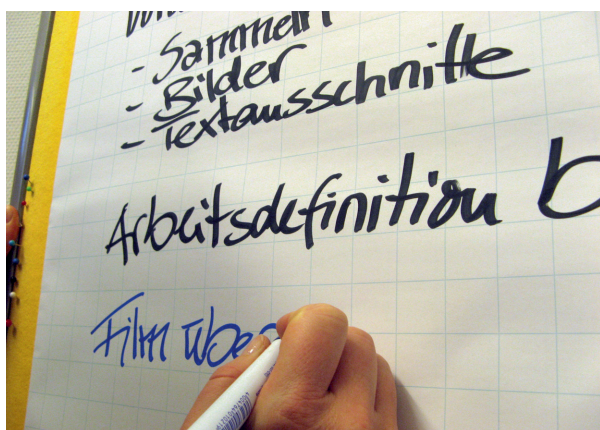 - Sammeln
- Bilder
- Textausschnitte
Arbeitsdefinition b
Film über